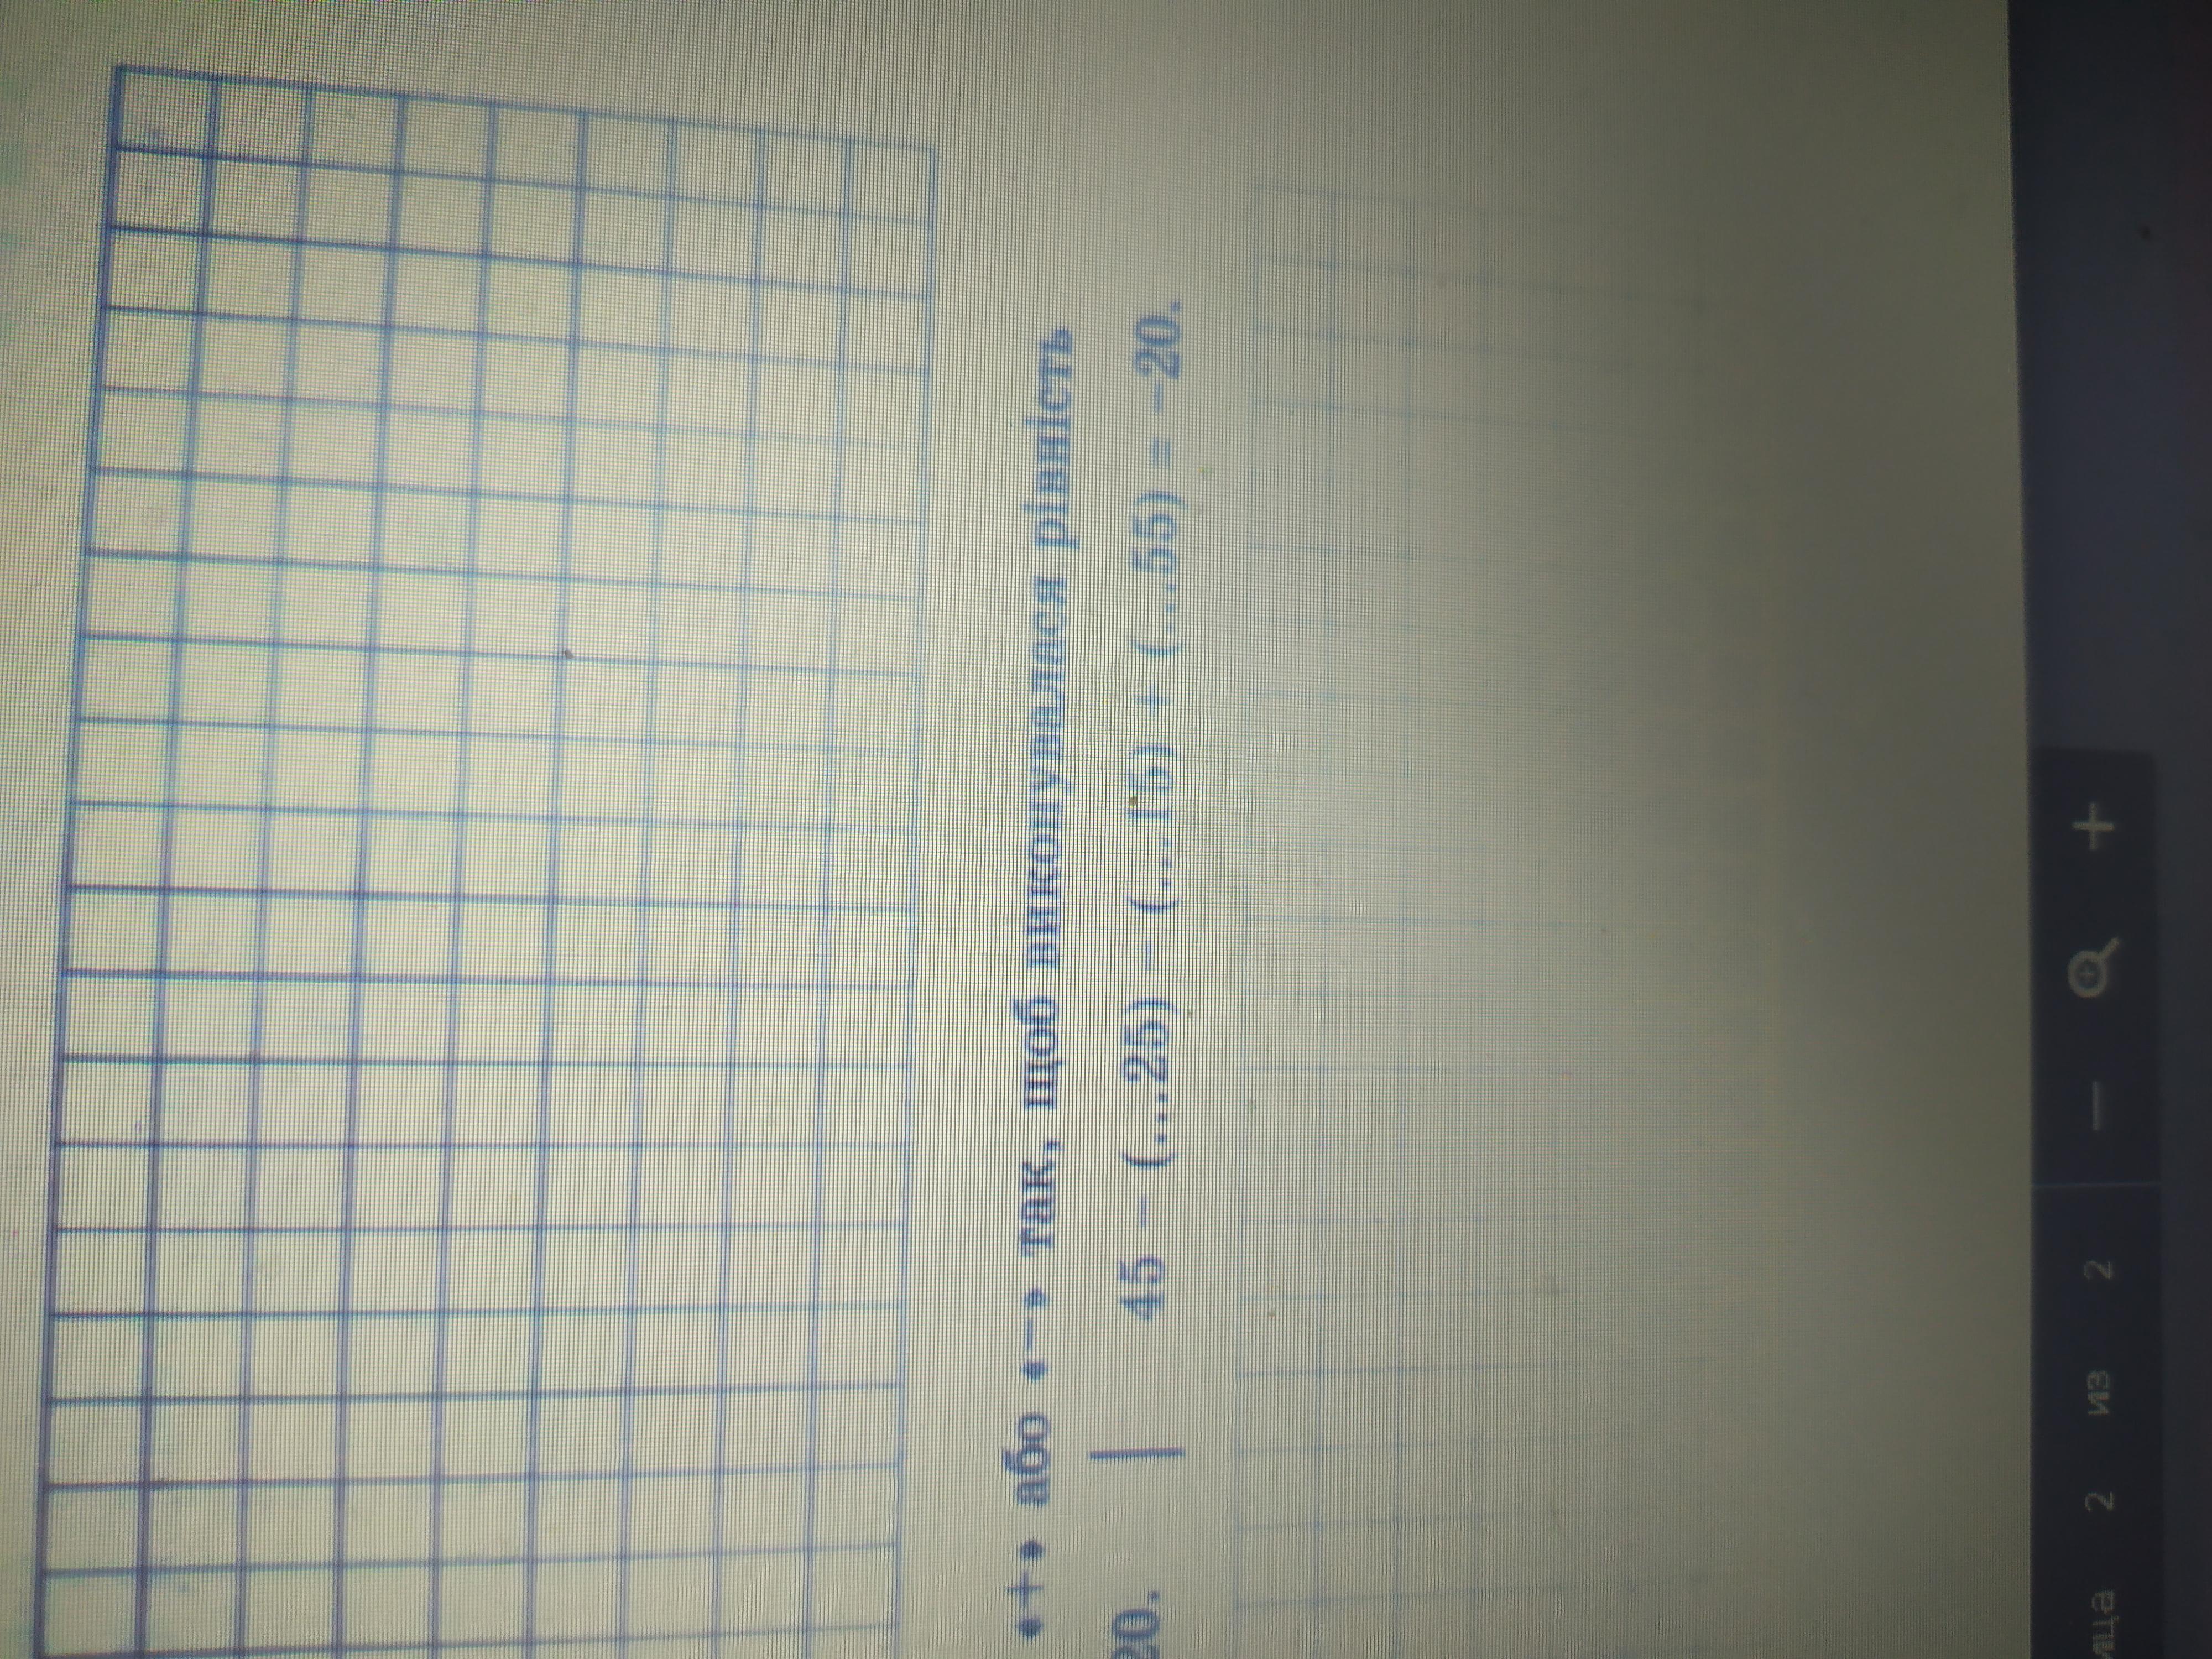 «+» або «–» так, щоб виконувалася рівність
20. | 45 – (...25) – (...15) + (...55) = –20.
ица 2 из 2